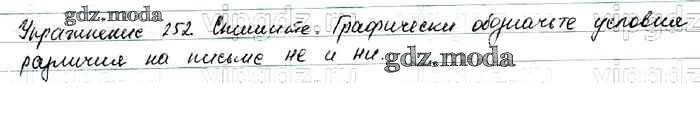 gdz.moda
Упражнение 252. Спишите. Графически обозначьте условия
различия на письме не и ни.
gdz.moda